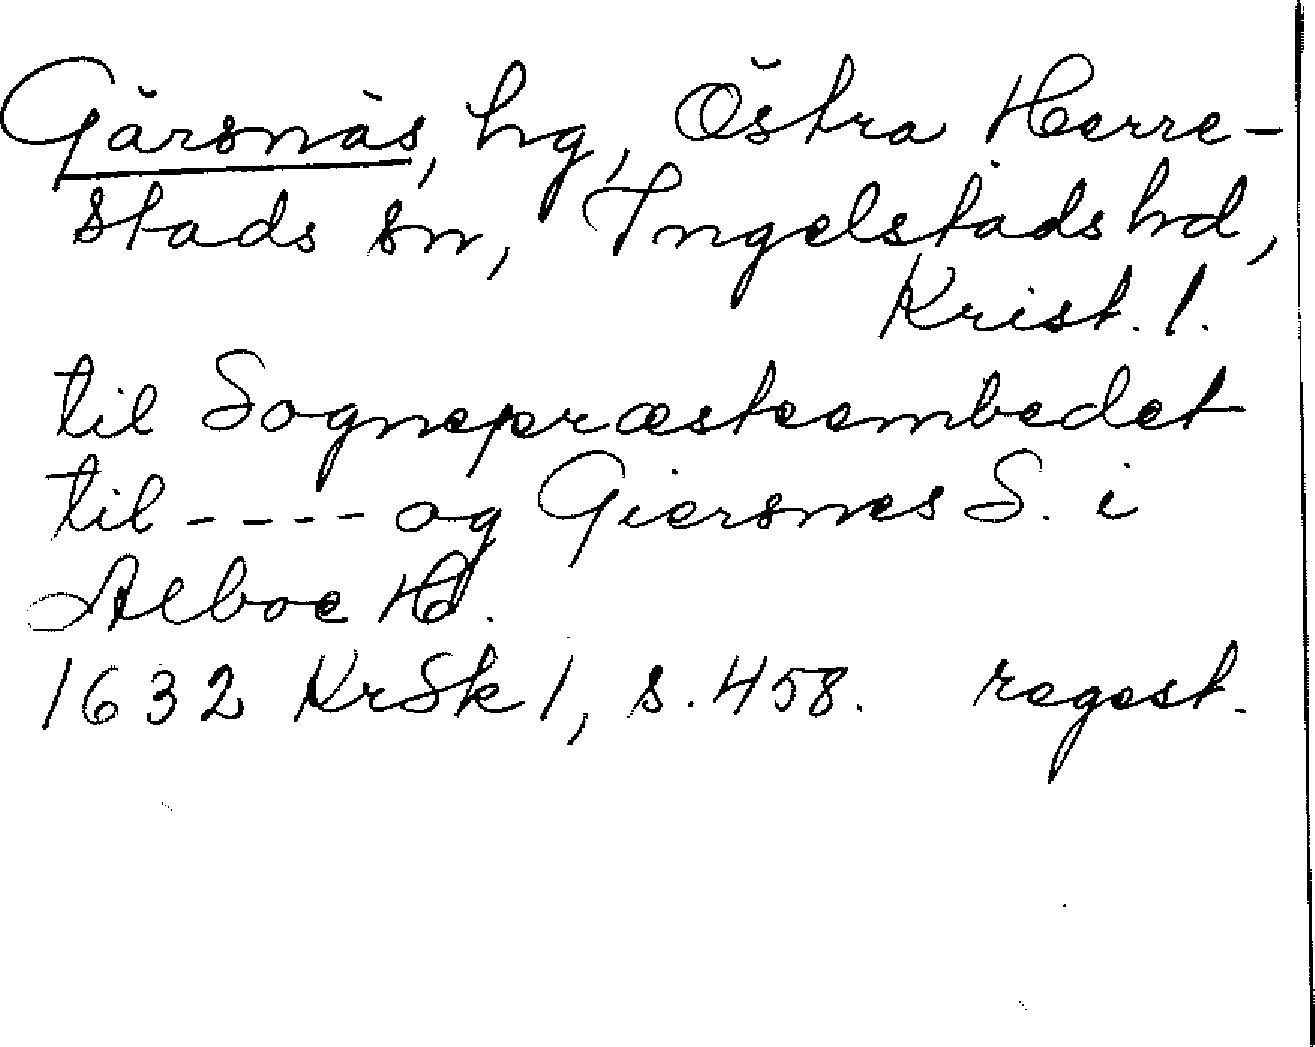 Gärsnäs, hg, Östra Herre-
stads sn, Ingelstads hd,
Krist. l.
til Sognepræsteembedet
til ---- og Giersnes S. i
Alboe H.
1632 KrSk 1, s. 458. regest.